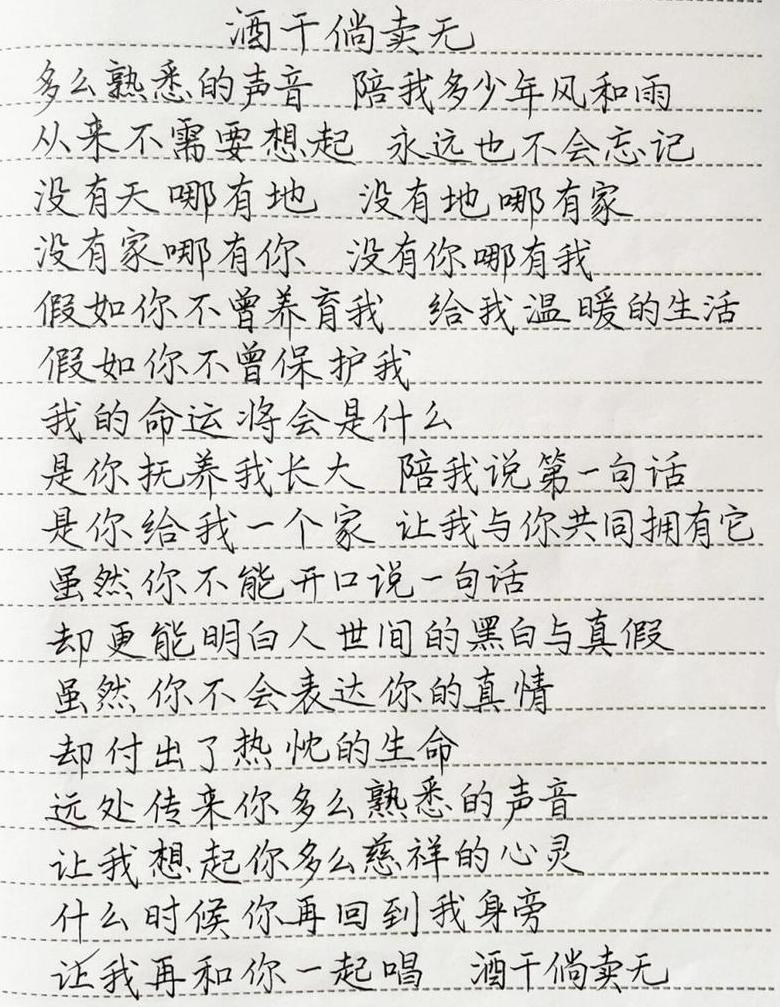 酒干倘卖无
多么熟悉的声音 陪我多少年风和雨
从来不需要想起 永远也不会忘记
没有天哪有地 没有地哪有家
没有家哪有你 没有你哪有我
假如你不曾养育我 给我温暖的生活
假如你不曾保护我
我的命运将会是什么
是你抚养我长大 陪我说第一句话
是你给我一个家 让我与你共同拥有它
虽然你不能开口说一句话
却更能明白人世间的黑白与真假
虽然你不会表达你的真情
却付出了热忱的生命
远处传来你多么熟悉的声音
让我想起你多么慈祥的心灵
什么时候你再回到我身旁
让我再和你一起唱 酒干倘卖无